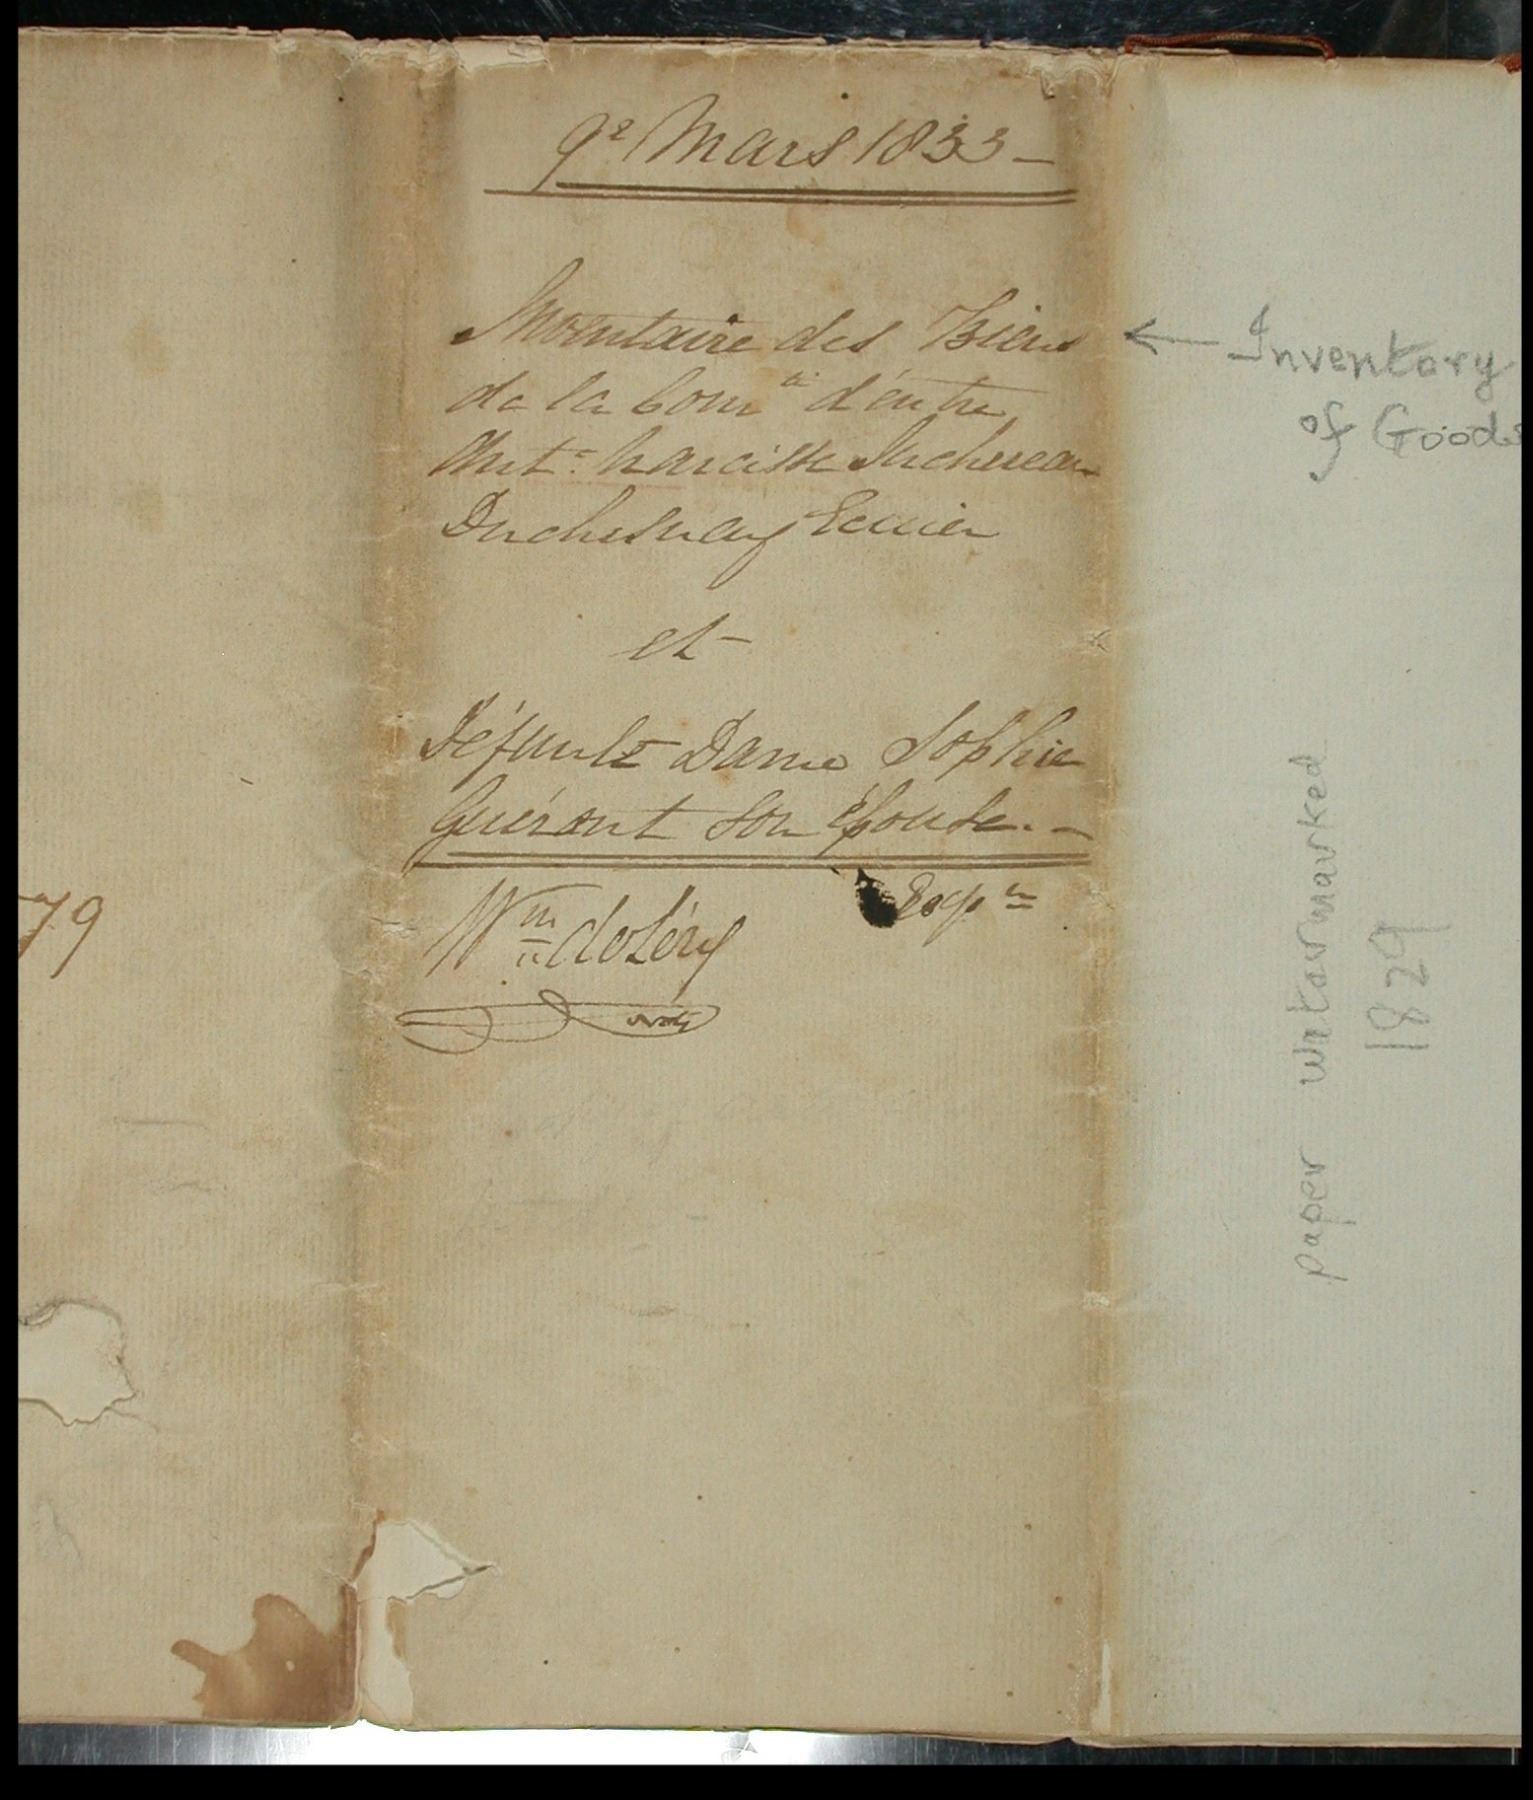 9e Mars 1833 –
Inventaire des Biens
de la Comté d'entre
Ante Narcisse Juchereau
Duchesnay Ecuier
et
Défunte Dame Sophie
Guérout son épouse. –
Expn
Wm deLéry
Not
79
← Inventory
of Goods
paper watermarked
1829